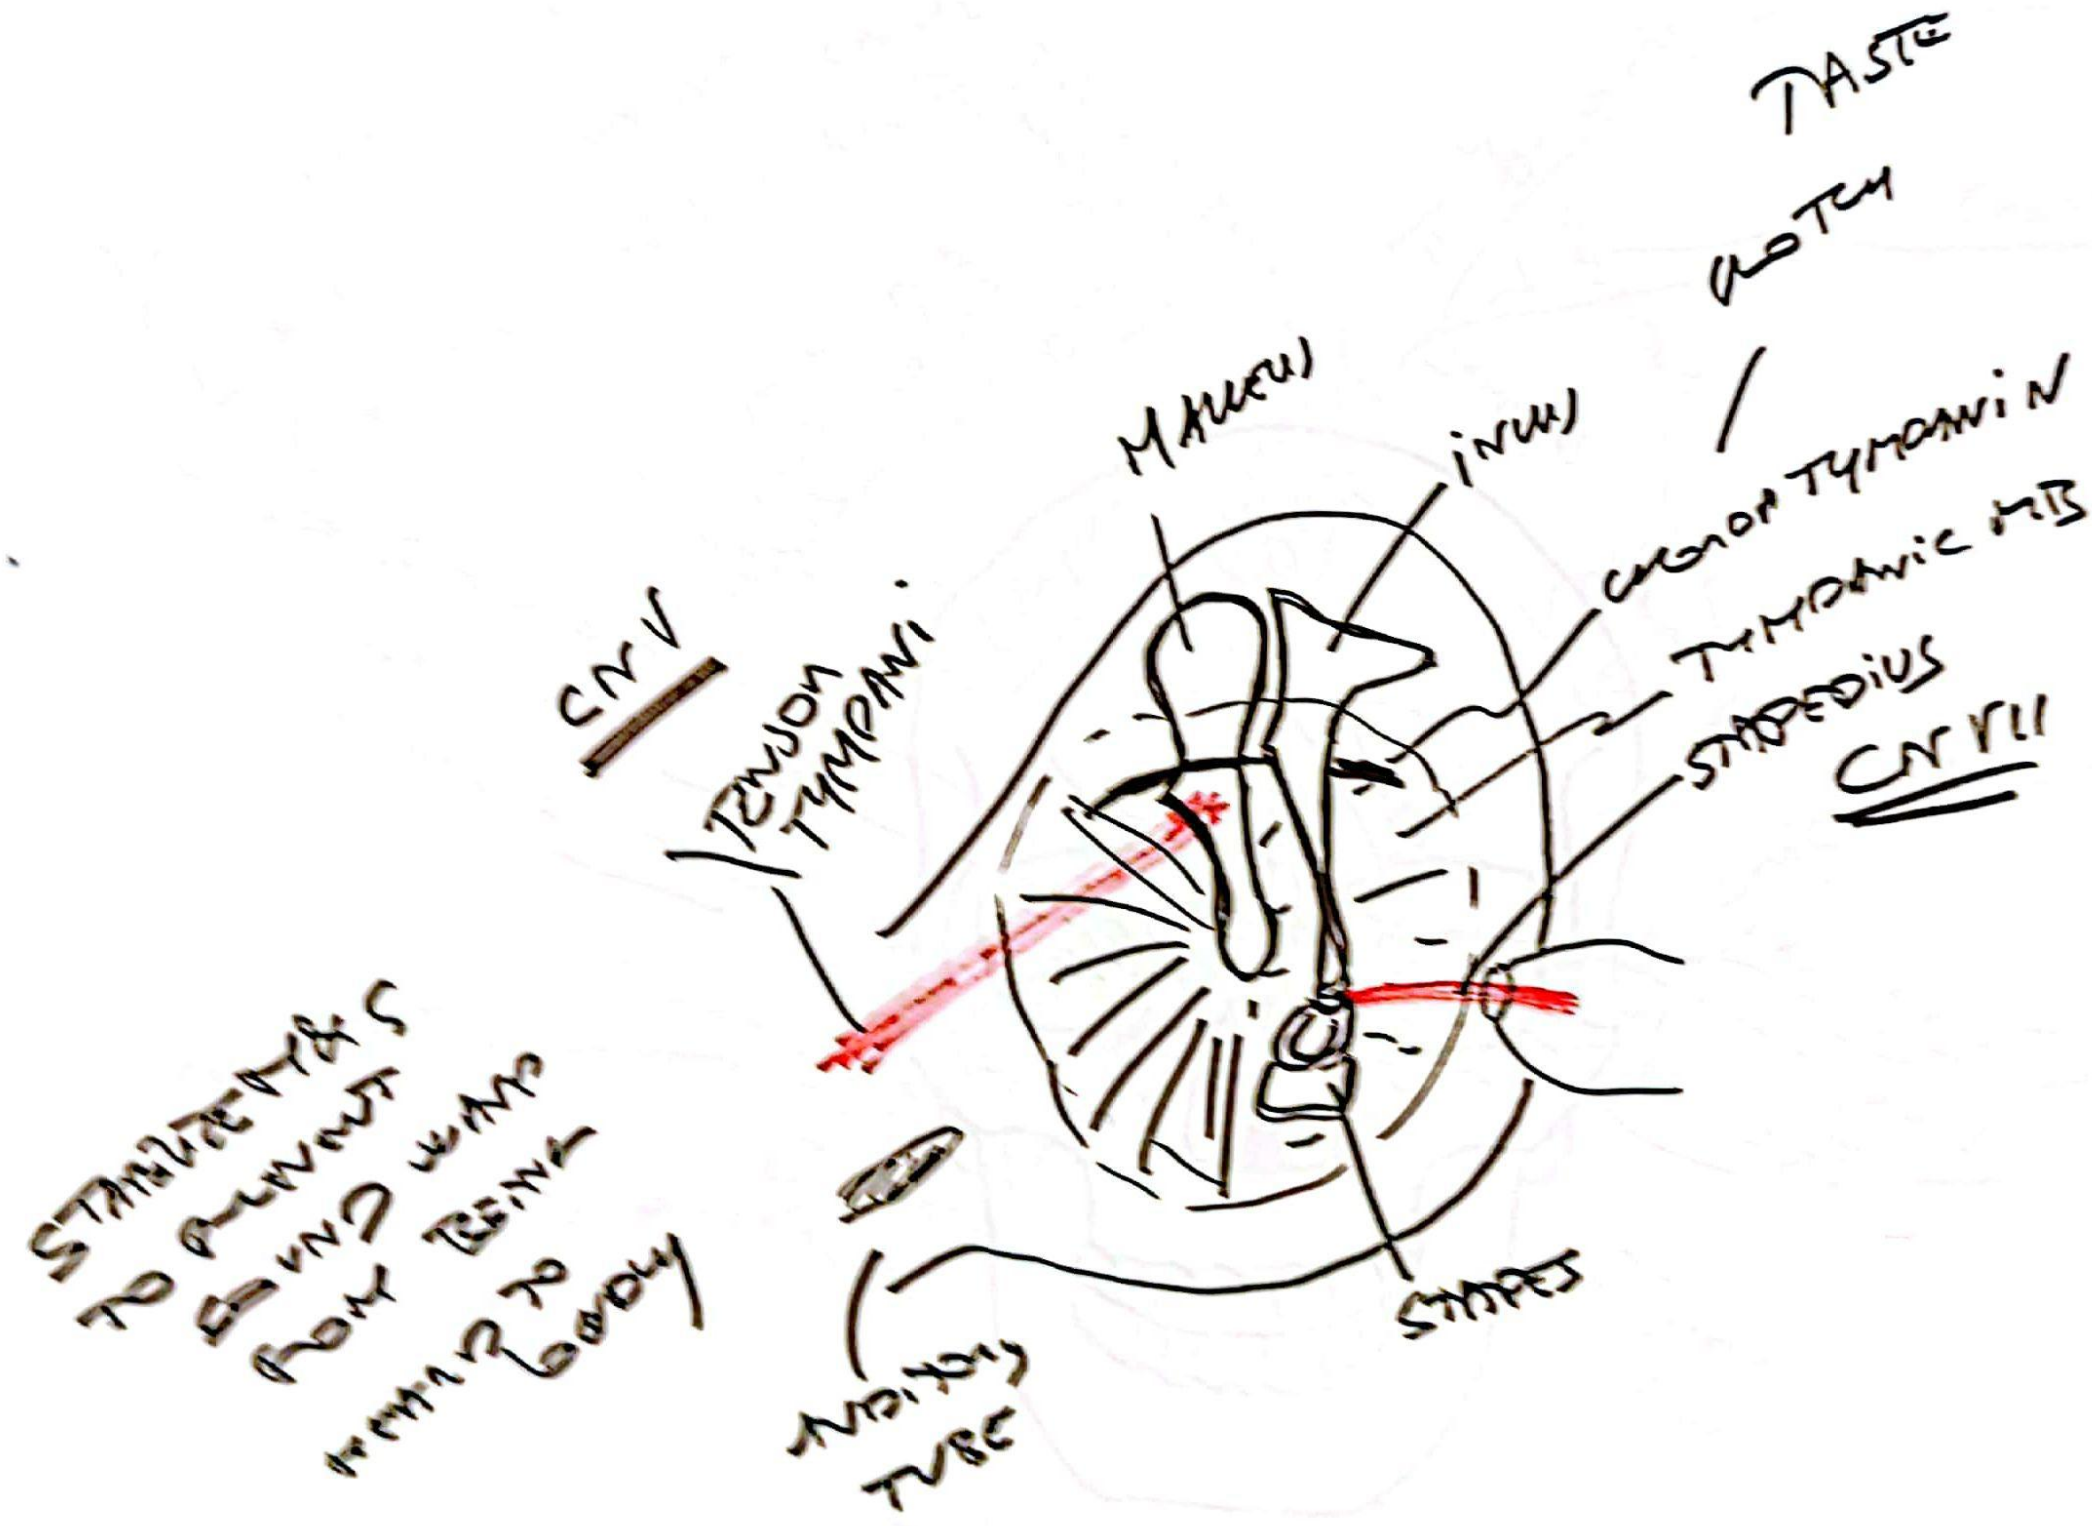 TASTE
MALLEUS
INCUS
CHORDA TYMPANI N
TYMPANIC MB
STAPEDIUS
CN VII
CN V
TENSOR
TYMPANI
STABILIZE M & S
TO PREVENT
SOUND WAVES
FROM BEING
HEARD TO
LOUDLY
STAPES
AUDITORY
TUBE